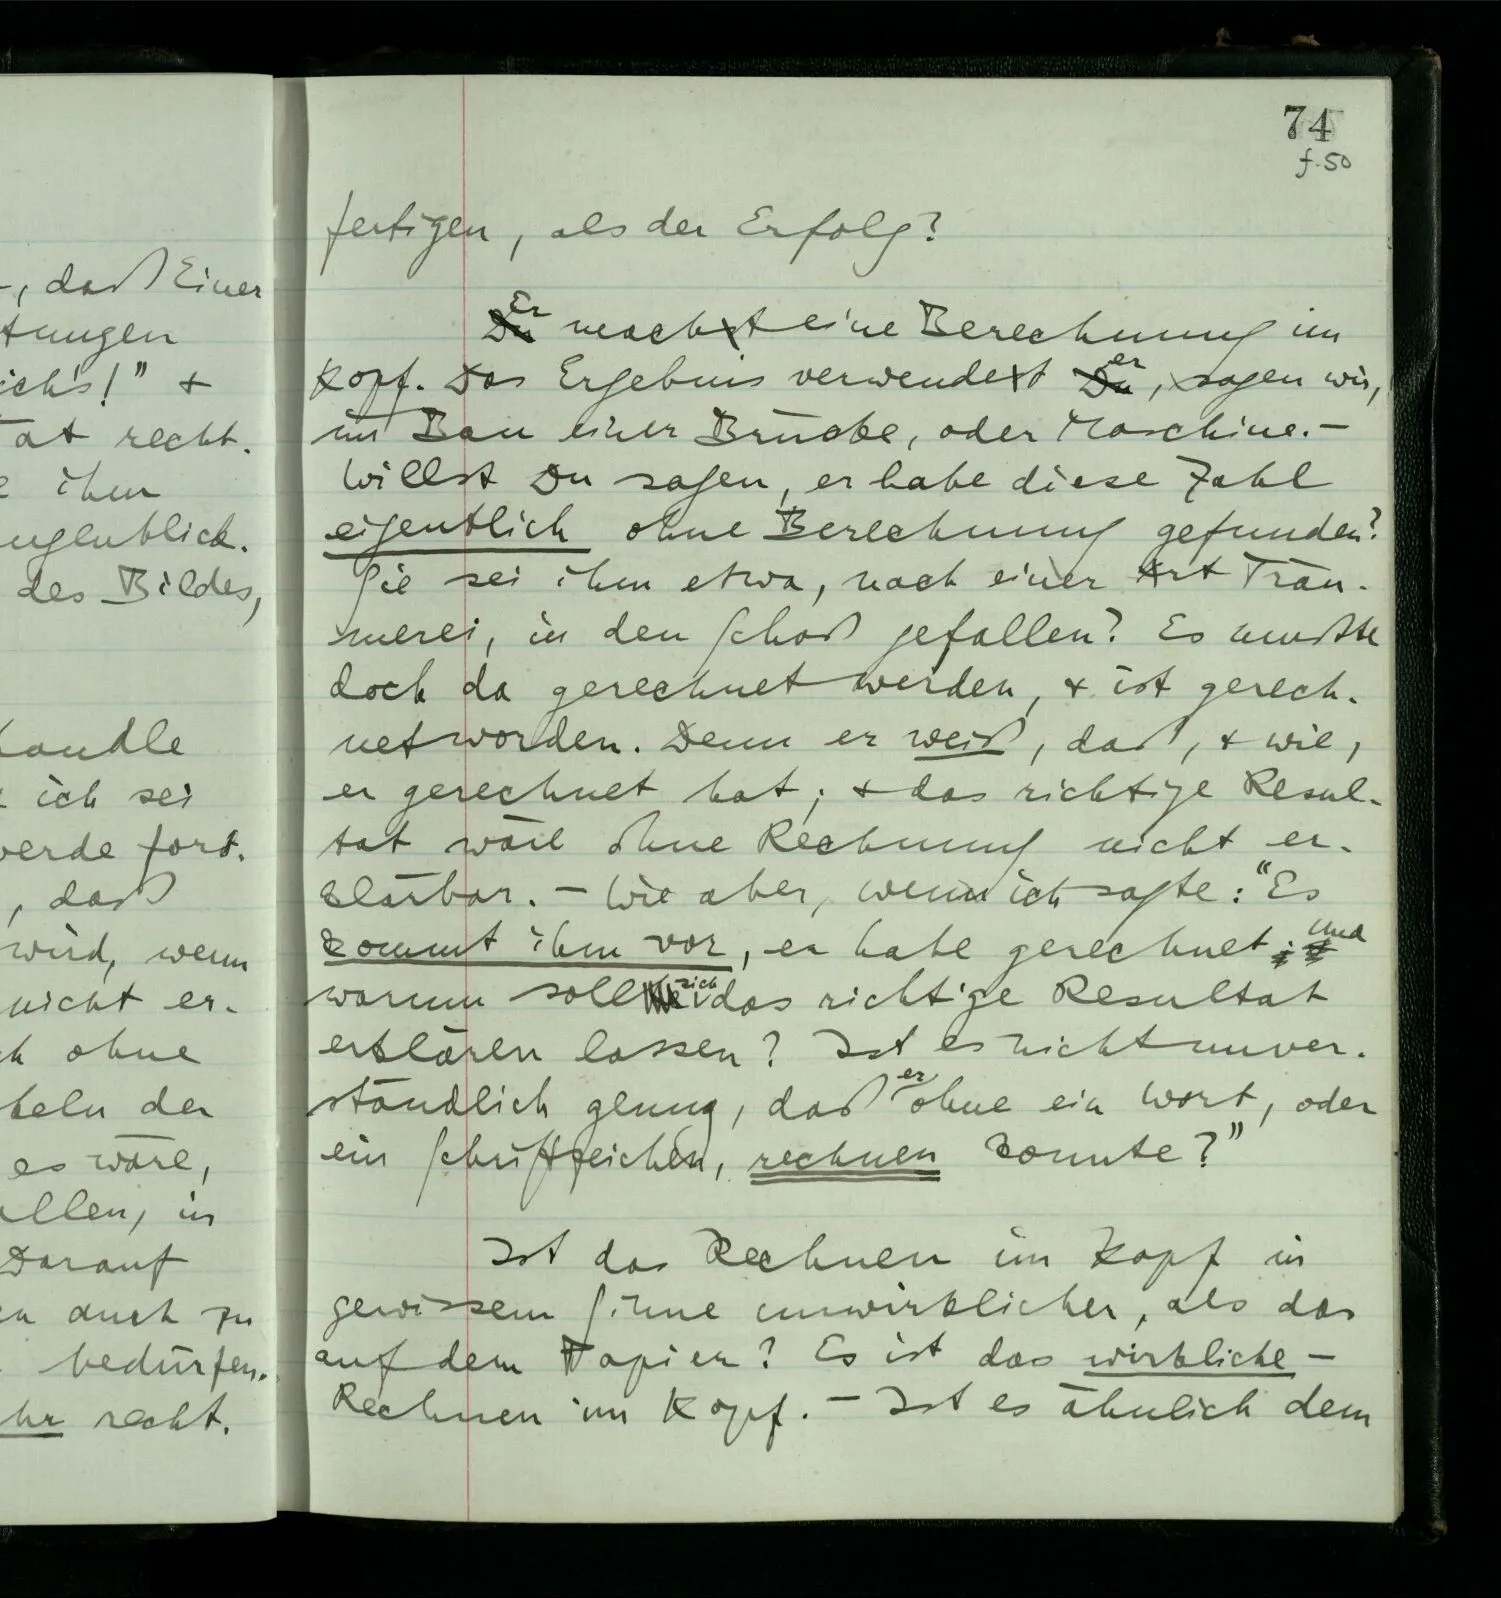 -, daß Einer
tungen
ich's!" +
tat recht.
e ihm
ugenblick.
des Bildes,
handle
ich sei
werde fort.
, daß
wird, wenn
nicht er-
ch ohne
beln der
es wäre,
allen, in
Darauf
en auch zu
bedürfen.
hr recht.
74
f. 50
fertigen, als der Erfolg?
Du Er machst eine Berechnung im
Kopf. Das Ergebnis verwendet Du er, sagen wir,
im Bau einer Brücke, oder Maschine. –
Willst Du sagen, er habe diese Zahl
eigentlich ohne Berechnung gefunden?
Sie sei ihm etwa, nach einer Art Träu-
merei, in den Schoß gefallen? Es mußte
doch da gerechnet werden, + ist gerech-
net worden. Denn er weiß, daß, + wie,
er gerechnet hat; + das richtige Resul-
tat wäre ohne Rechnung nicht er-
klärbar. – Wie aber, wenn ich sagte: "Es
kommt ihm vor, er habe gerechnet; und
warum soll sich das richtige Resultat
erklären lassen? Ist es nicht unver-
ständlich genug, daß er ohne ein Wort, oder
ein Schriftzeichen, rechnen konnte?"
Ist das Rechnen im Kopf in
gewissem Sinne unwirklicher, als das
auf dem Papier? Es ist das wirkliche –
Rechnen im Kopf. – Ist es ähnlich dem